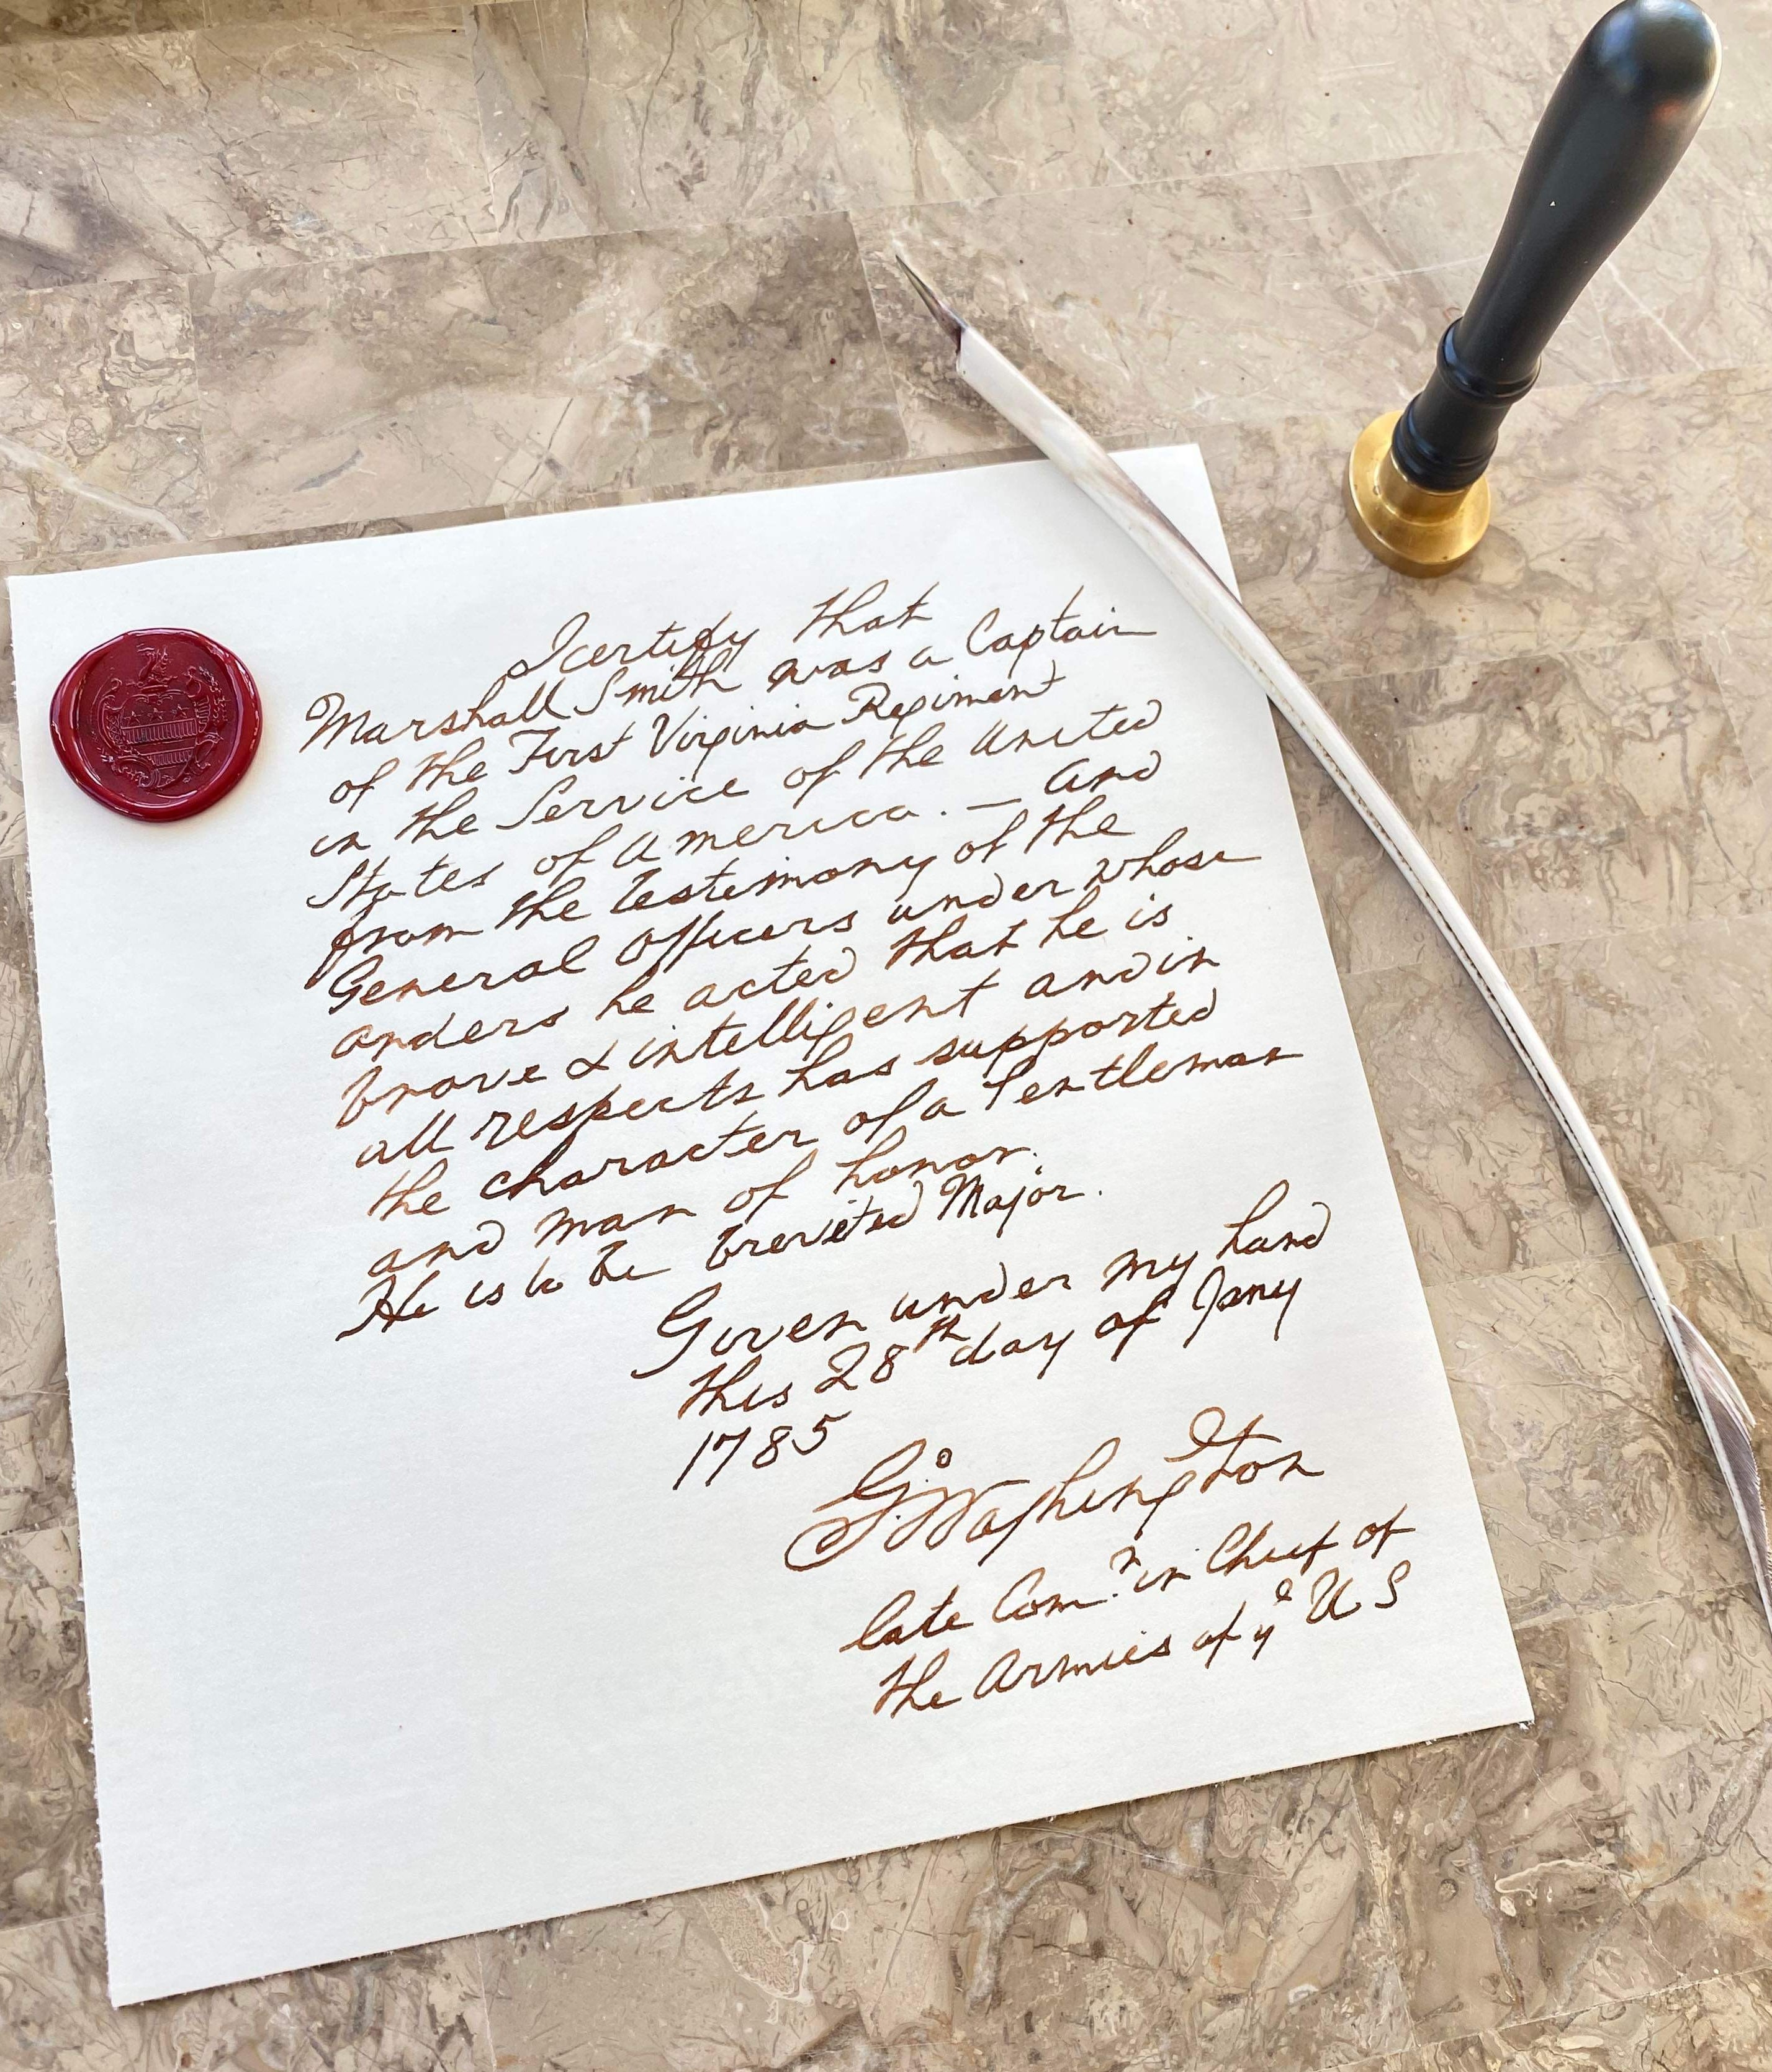 I certify that
Marshall Smith was a Captain
of the First Virginia Regiment
in the Service of the United
States of America. — And
from the testimony of the
General Officers under whose
orders he acted that he is
brave & intelligent and in
all respects has supported
the character of a Gentleman
and man of honor.
He is to be breveted Major.
Given under my hand
this 28th day of Jany
1785
Go Washington
late Comr in Chief of
the Armies of ye U S